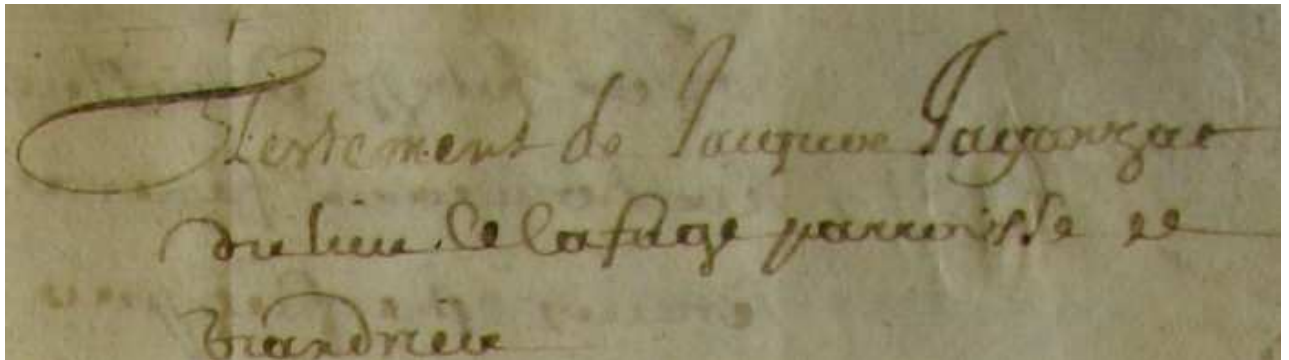 Testement de Jacques Jagonzac
du lieu de lafage parroisse de